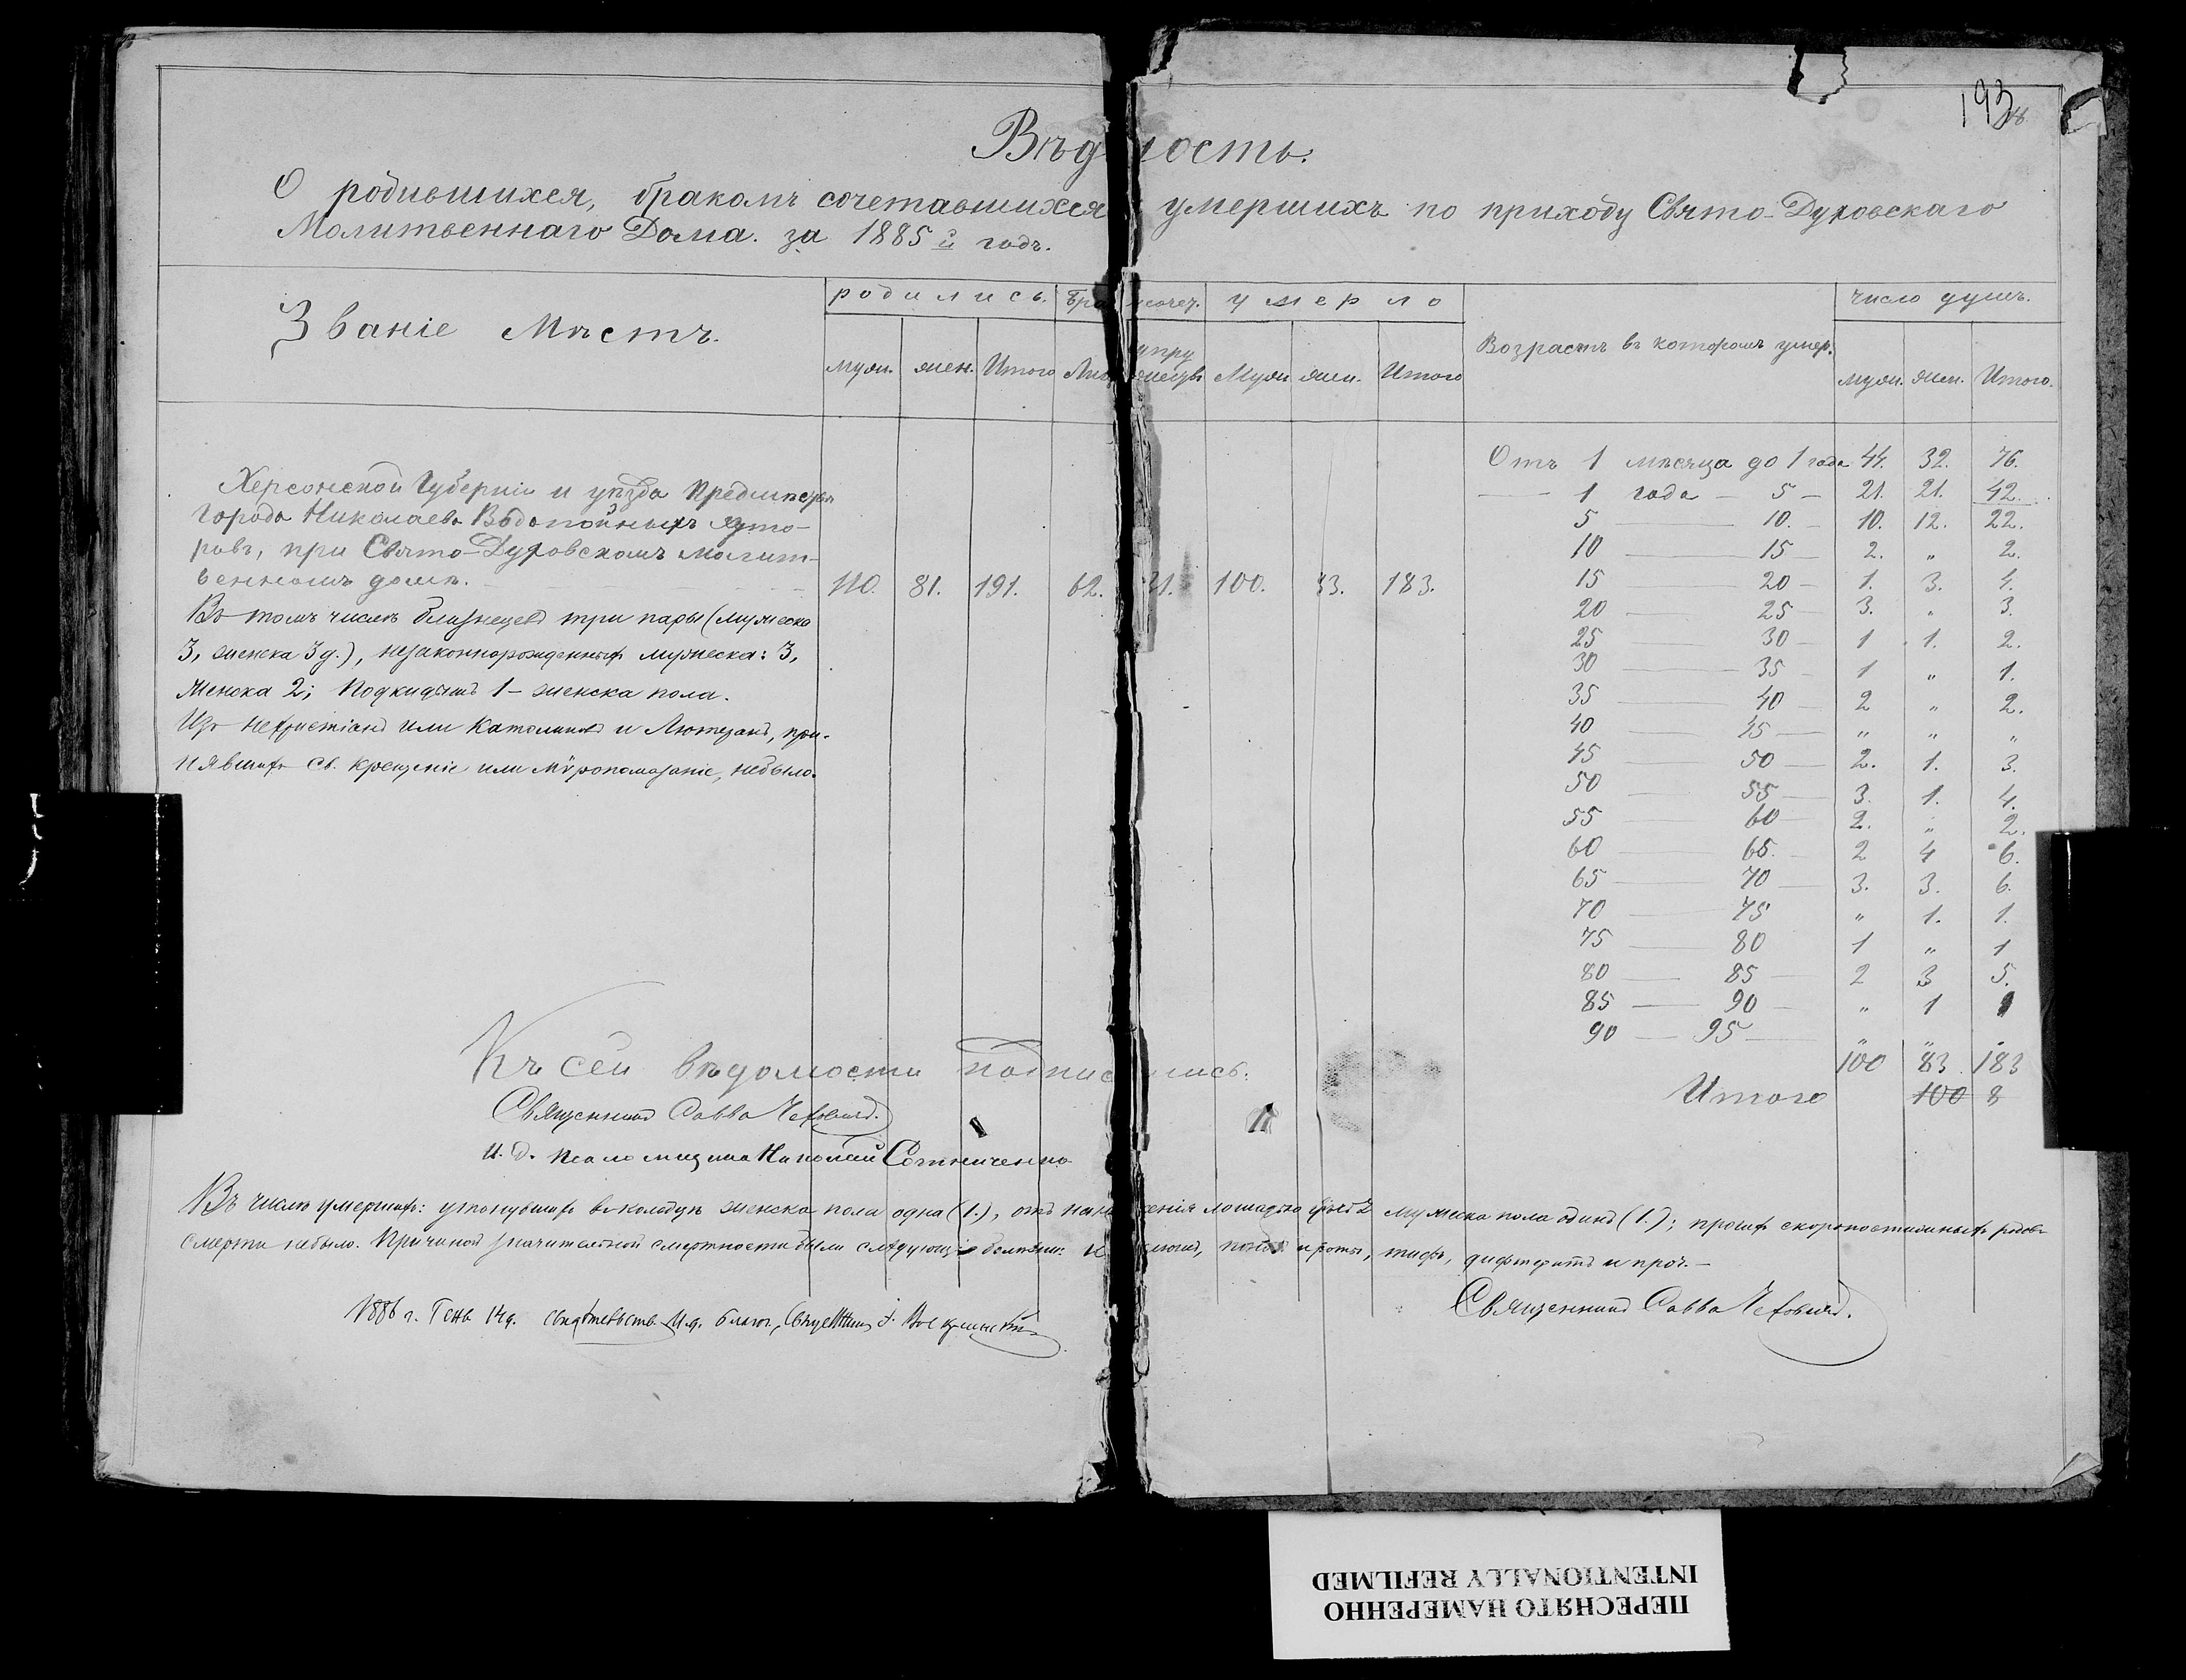 193
Вѣд ность.
О родившихся, бракомъ сочетавшихся умершихъ по приходу Свято-Духовскаго
Молитвеннаго Дома. за 1885й годъ.
Званіе Мѣстъ.
родились.
умерло
Возрастъ въ которомъ умер.
число душъ.
муж. жен. Итого
Муж жен. Итого
муж. жен. Итого.
Херсонской Губерніи и уѣзда Предмѣстья
города Николаева Водопойныхъ хуто-
ровъ, при Свято-Духовскомъ молит-
венномъ домѣ. 110. 81. 191. 62. 31. 100. 83. 183.
Въ томъ числѣ близнецевъ три пары (мужеска
3, женска 3 д.), незаконнорожденныхъ мужеска: 3,
женска 2; Подкидышъ 1 – женска пола.
Изъ нехристіанъ или Католиковъ и Лютеранъ, при-
нявшихъ Св. крещеніе или Мѵропомазаніе, небыло.
Отъ 1 мѣсяца до 1 года 44. 32. 76.
1 года — 5 — 21. 21. 42.
5 — 10. — 10. 12. 22.
10 — 15 — 2. „ 2.
15 — 20 — 1. 3. 4.
20 — 25 — 3. „ 3.
25 — 30 — 1 1. 2.
30 — 35 — 1 „ 1.
35 — 40 — 2 „ 2.
40 — 45 — „ „ „
45 — 50 — 2. 1. 3.
50 — 55 — 3. 1. 4.
55 — 60 2. „ 2.
60 — 65. — 2 4 6.
65 — 70 — 3. 3. 6.
70 — 75 „ 1. 1.
75 — 80 1 „ 1
80 — 85 — 2 3 5.
85 — 90 — „ 1 1
90 — 95 — „ „ „
100 83 183
Итого 100 8
Къ сей вѣдомости подпис лись:
Священникъ Савва
И. д. псаломщика Николай Сотниченко
Въ числѣ умершихъ: утонувшихъ въ колодцѣ женска пола одна (1.), отъ лошадью мужеска пола одинъ (1.); прочихъ скоропостижныхъ родовъ
смерти небыло. Причиной значительной смертности были слѣдующія болѣзни: тифъ, дифтеритъ и проч. —
Священникъ Савва
1886 г. Генв. 14 д. И.д. Благоч. Священникъ
ПЕРЕСНЯТО НАМЕРЕННО
INTENTIONALLY REFILMED